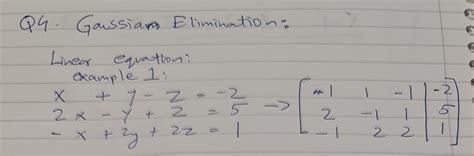 Q4. Gaussian Elimination:
Linear equation:
example 1:
x + y - z = -2
2x - y + z = 5
-x + 2y + 2z = 1
→
[ 1 1 -1 | -2
2 -1 1 | 5
-1 2 2 | 1 ]